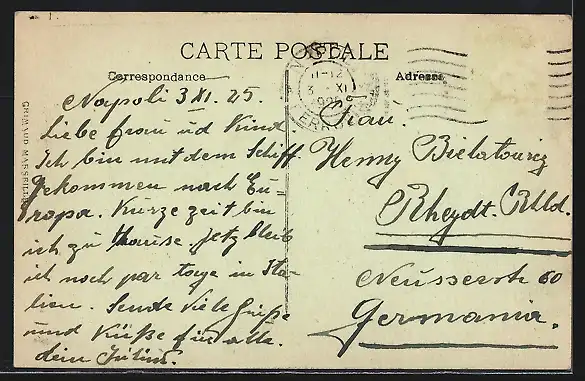 CARTE POSTALE
Correspondance
Adresse
Napoli 3 XI. 25.
Liebe frau ud Kind
Ich bin mit dem Schiff
gekommen nach Eu-
ropa. Kurze zeit bin
ich zu Hause. Jetz bleib
ich noch par tage in Ita-
lien. Sende viele Grüße
und Küße für alle.
dein Julius.
11-12
3 XI
FERROVIA
Frau.
Henny Bielatowicz
Rheydt. Rhld.
Neusserstr 60
Germania.
GRIMAUD MARSEILLE